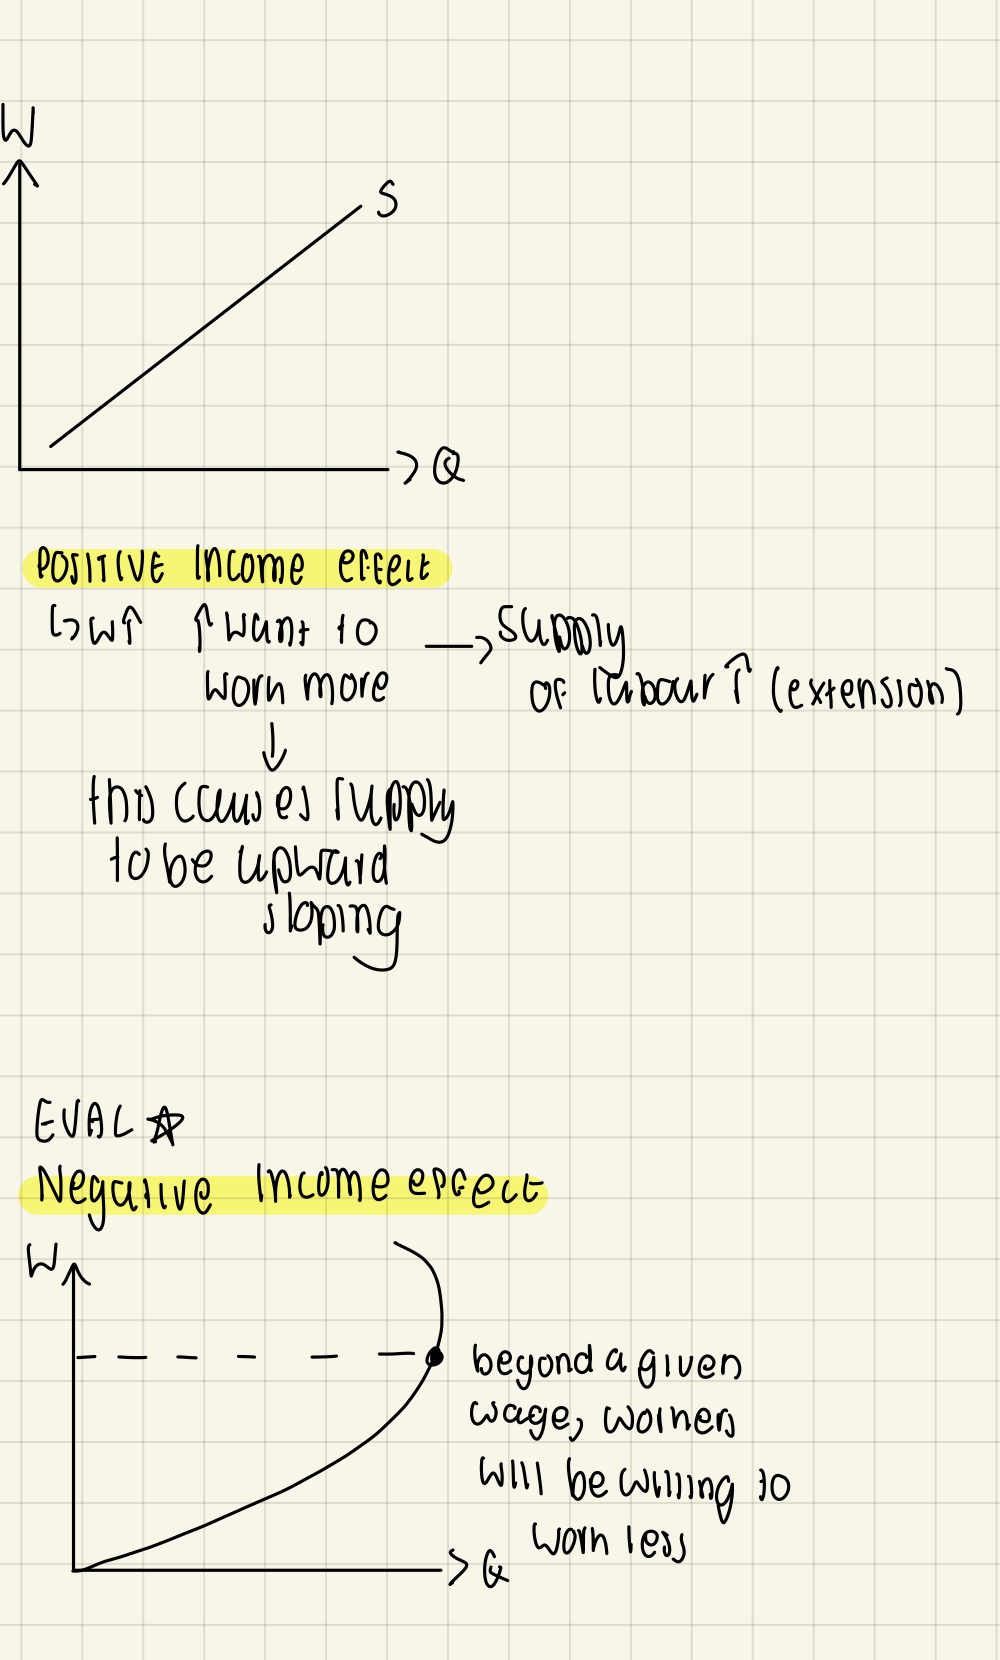 W
S
> Q
POSITIVE Income effect
↳ W↑ ↑ want to → supply
work more of labour ↑ (extension)
↓
this causes supply
to be upward
sloping
EVAL ☆
Negative Income effect
W
beyond a given
wage, workers
will be willing to
work less
> Q